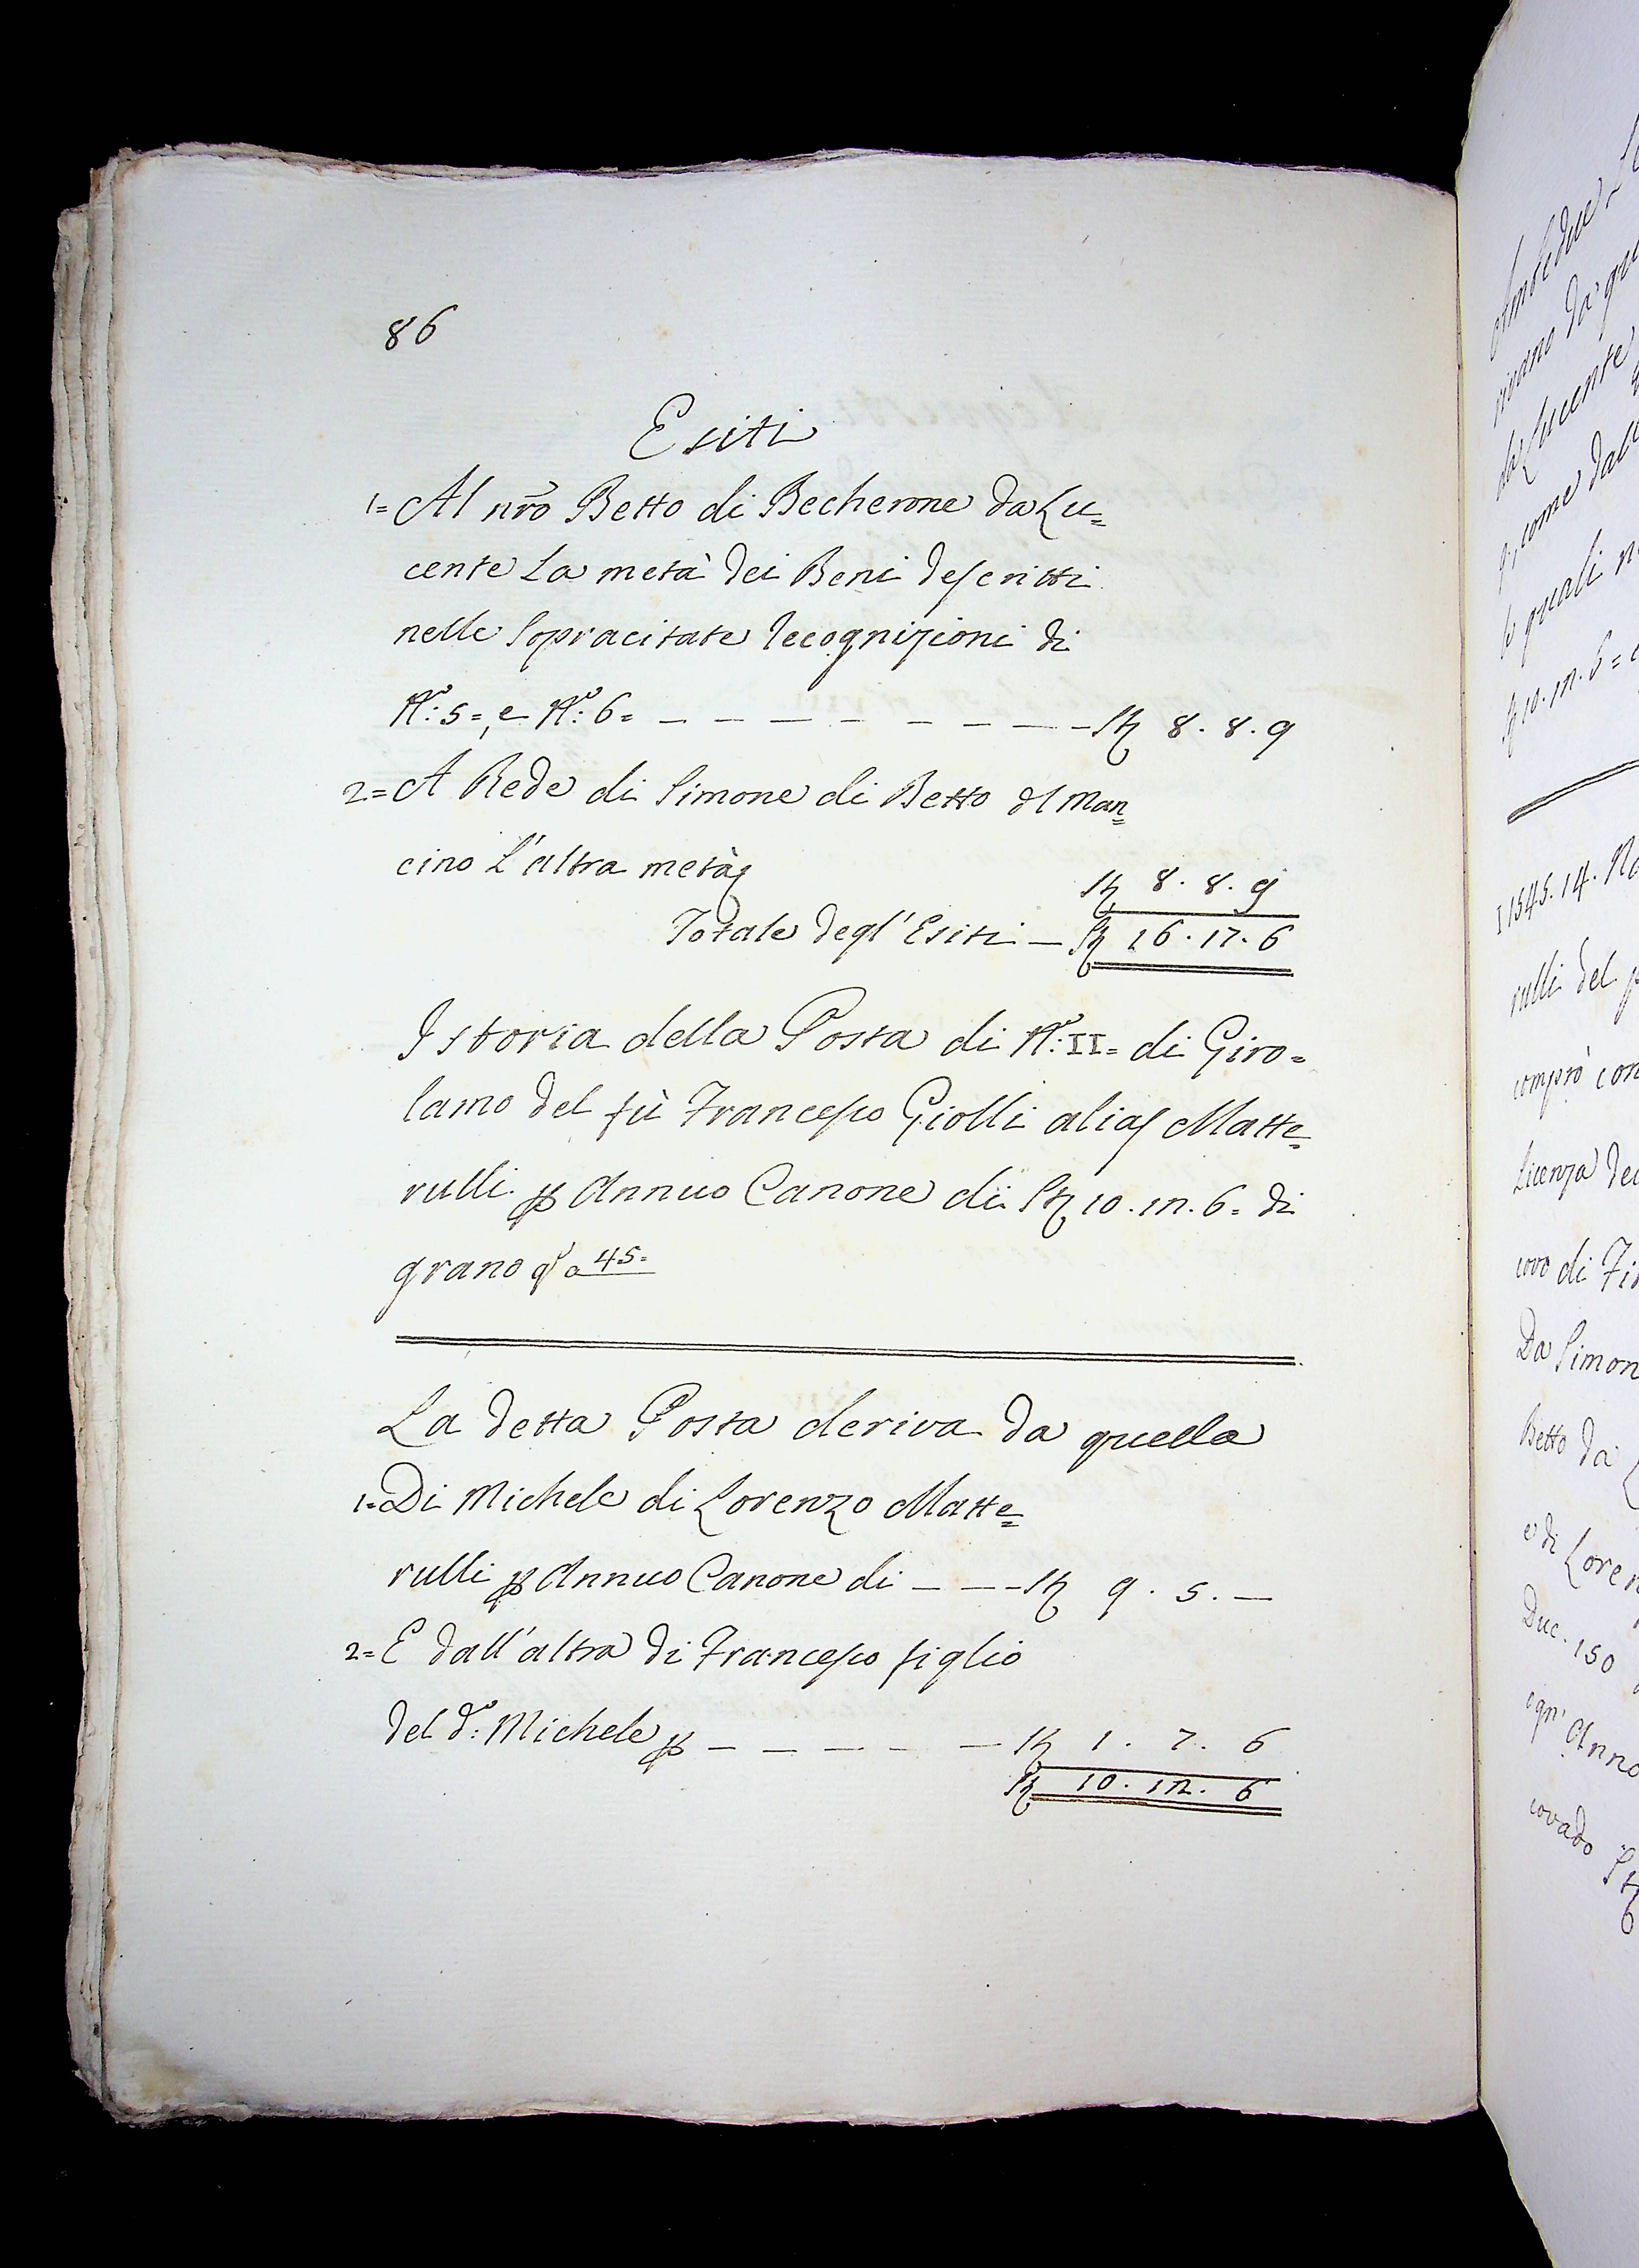 86
Esiti
1= Al nrõ Betto di Becherone da Lu=
cente La metà dei Beni descritti
nelle Sopracitate recognizioni di
N.º: 5=, e N.º: 6= — — — — — — — St 8. 8. 9
2= A Rede di Simone di Betto dl Man=
cino L'altra metà St 8. 8. 9
Totale degl'Esiti — St 16. 17. 6
Istoria della Posta di N.º: II= di Giro=
lamo del fù Francesco Giolli alias Matte=
rulli p Annuo Canone di St 10. 12. 6= di
grano a 45=
La detta Posta deriva da quella
1= Di Michele di Lorenzo Matte=
rulli p Annuo Canone di — — — St 9. 5. —
2= E dall'altra di Francesco figlio
del d.º: Michele p — — — — — St 1. 7. 6
St 10. 12. 6
Ambedue
rivano da qu
da Lucente
come dal
le quali n
St 10. 12. 6=
1545. 14. No
rulli del p
comprò con
Licenza de
covo di Fi
Da Simon
Betto da L
e di Loren
Duc. 150
ogn' Anno
covado St